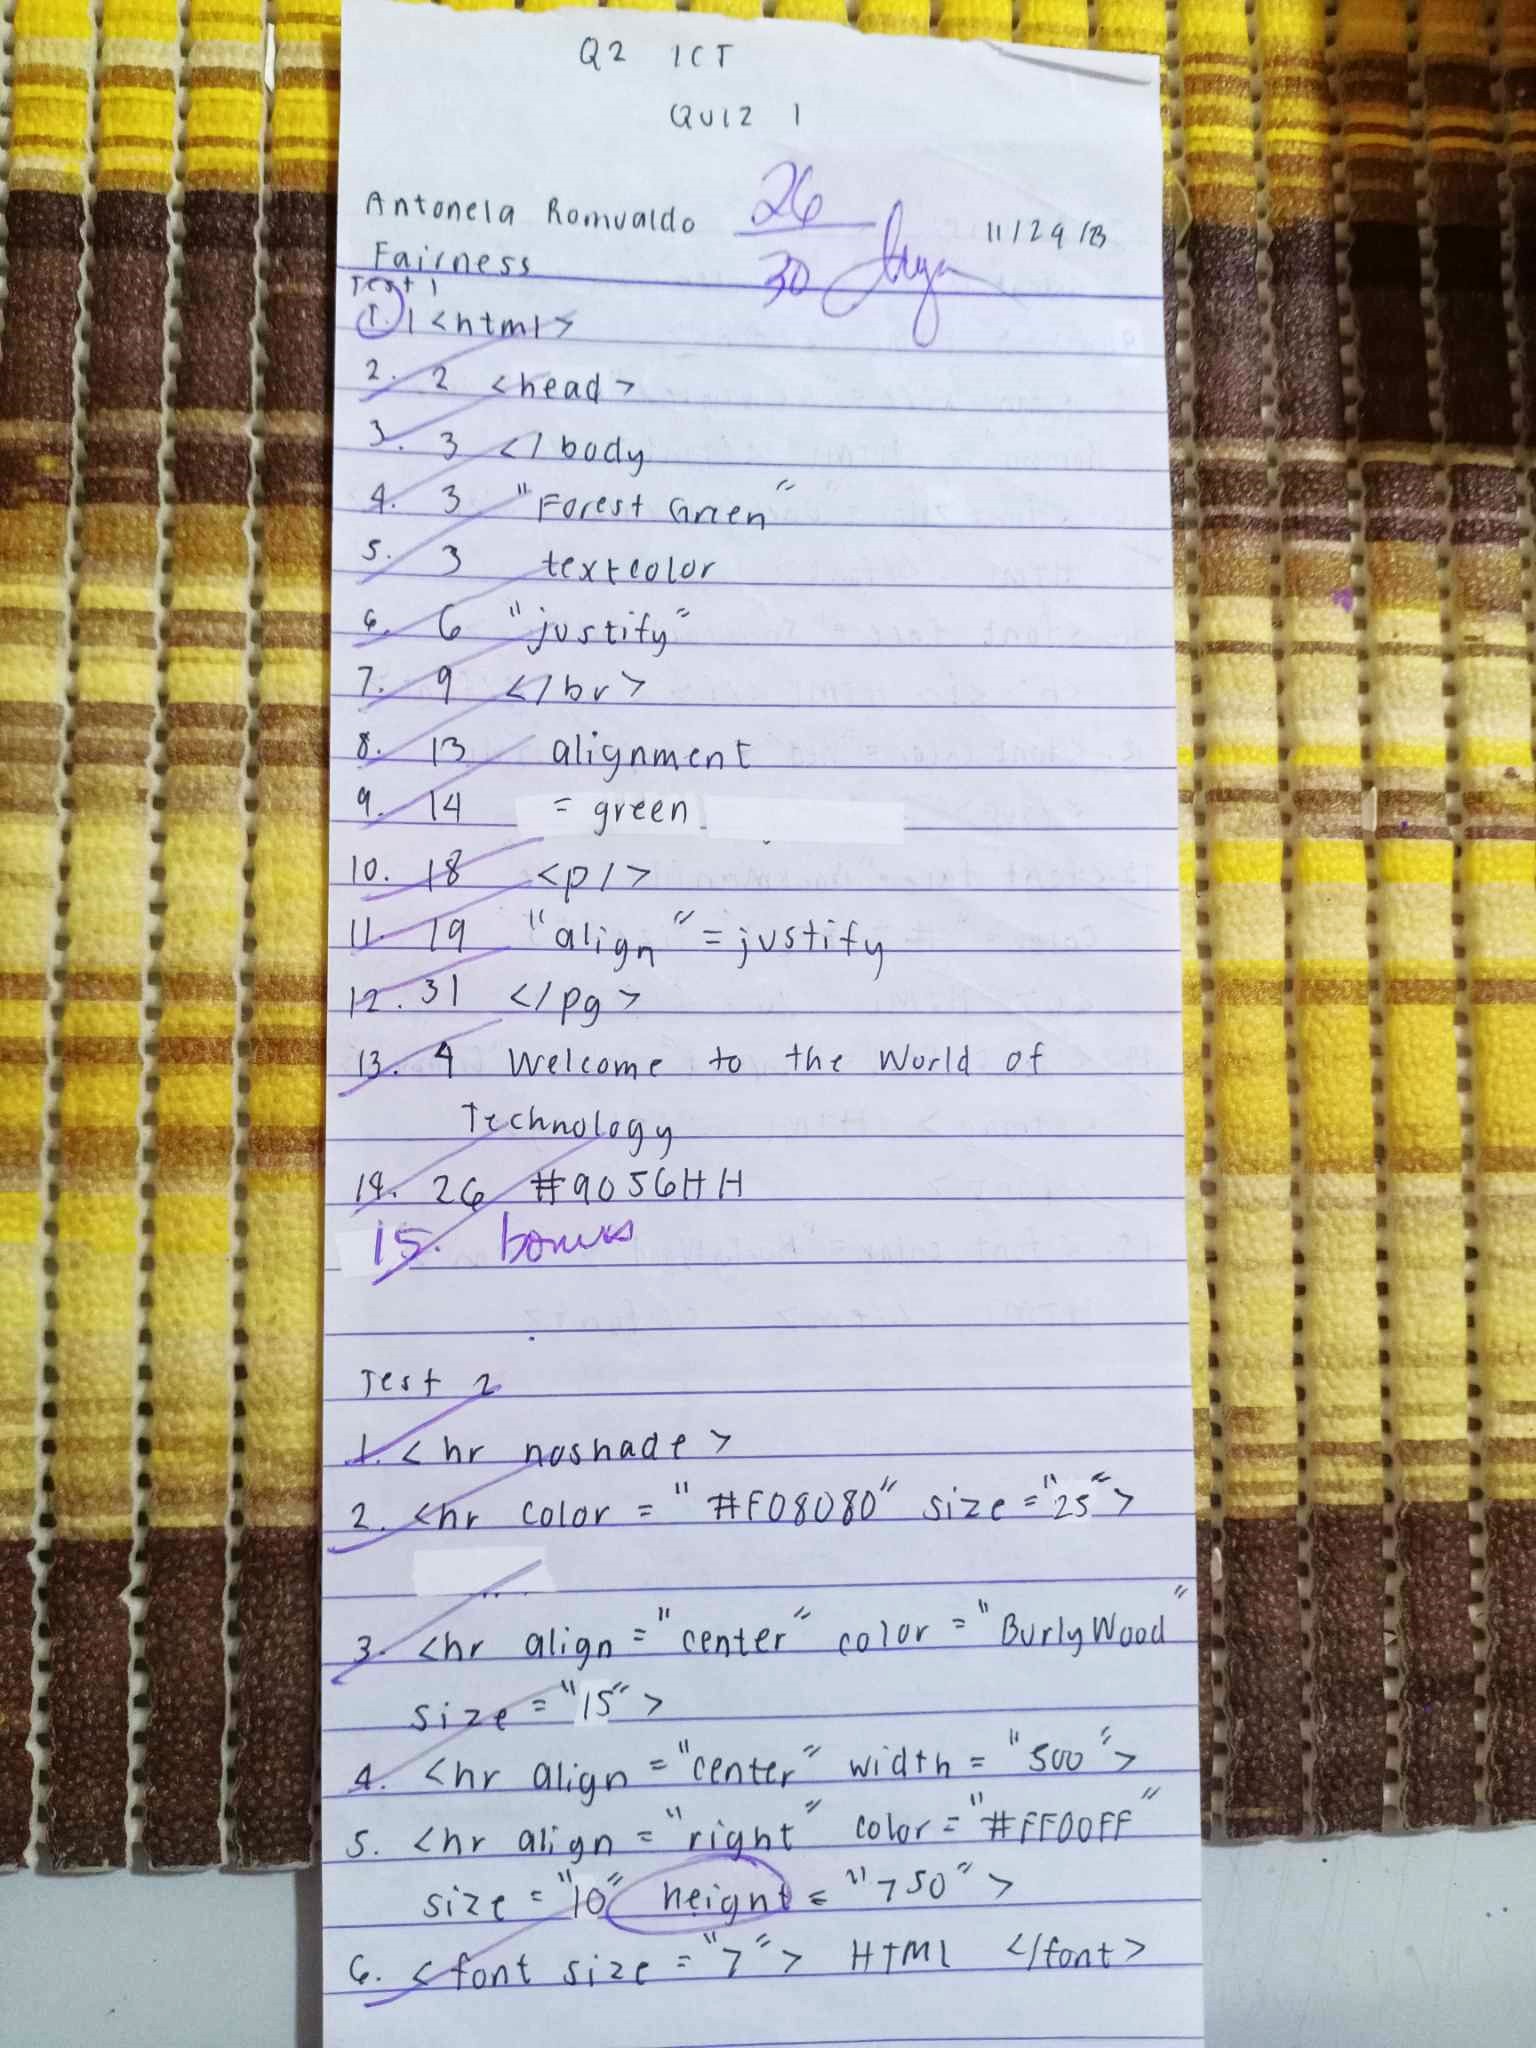 Q2 ICT
QUIZ 1
Antonela Romualdo 26/30 11/29/23
Fairness
Test 1
1. 1 <html>
2. 2 <head>
3. 3 </body
4. 3 "Forest Green"
5. 3 textcolor
6. 6 "justify"
7. 9 </br>
8. 13 alignment
9. 14 = green
10. 18 <p/>
11. 19 "align" = justify
12. 31 </pg>
13. 4 Welcome to the World of
Technology
14. 26 #9056HH
15. bonus
Test 2
1. <hr noshade>
2. <hr color = "#F08080" size = "25">
3. <hr align = "center" color = "BurlyWood"
size = "15">
4. <hr align = "center" width = "500">
5. <hr align = "right" color = "#FF00FF"
size = "10" height = "750">
6. <font size = "7"> HTML </font>